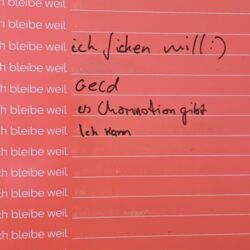 ch bleibe weil
ch bleibe weil
ch bleibe weil ich ficken will :)
ch bleibe weil
ch bleibe weil Geld
ch bleibe weil es Charmotion gibt
ch bleibe weil Ich kann
ch bleibe weil
ch bleibe weil
ch bleibe weil
ch bleibe weil
ch bleibe weil